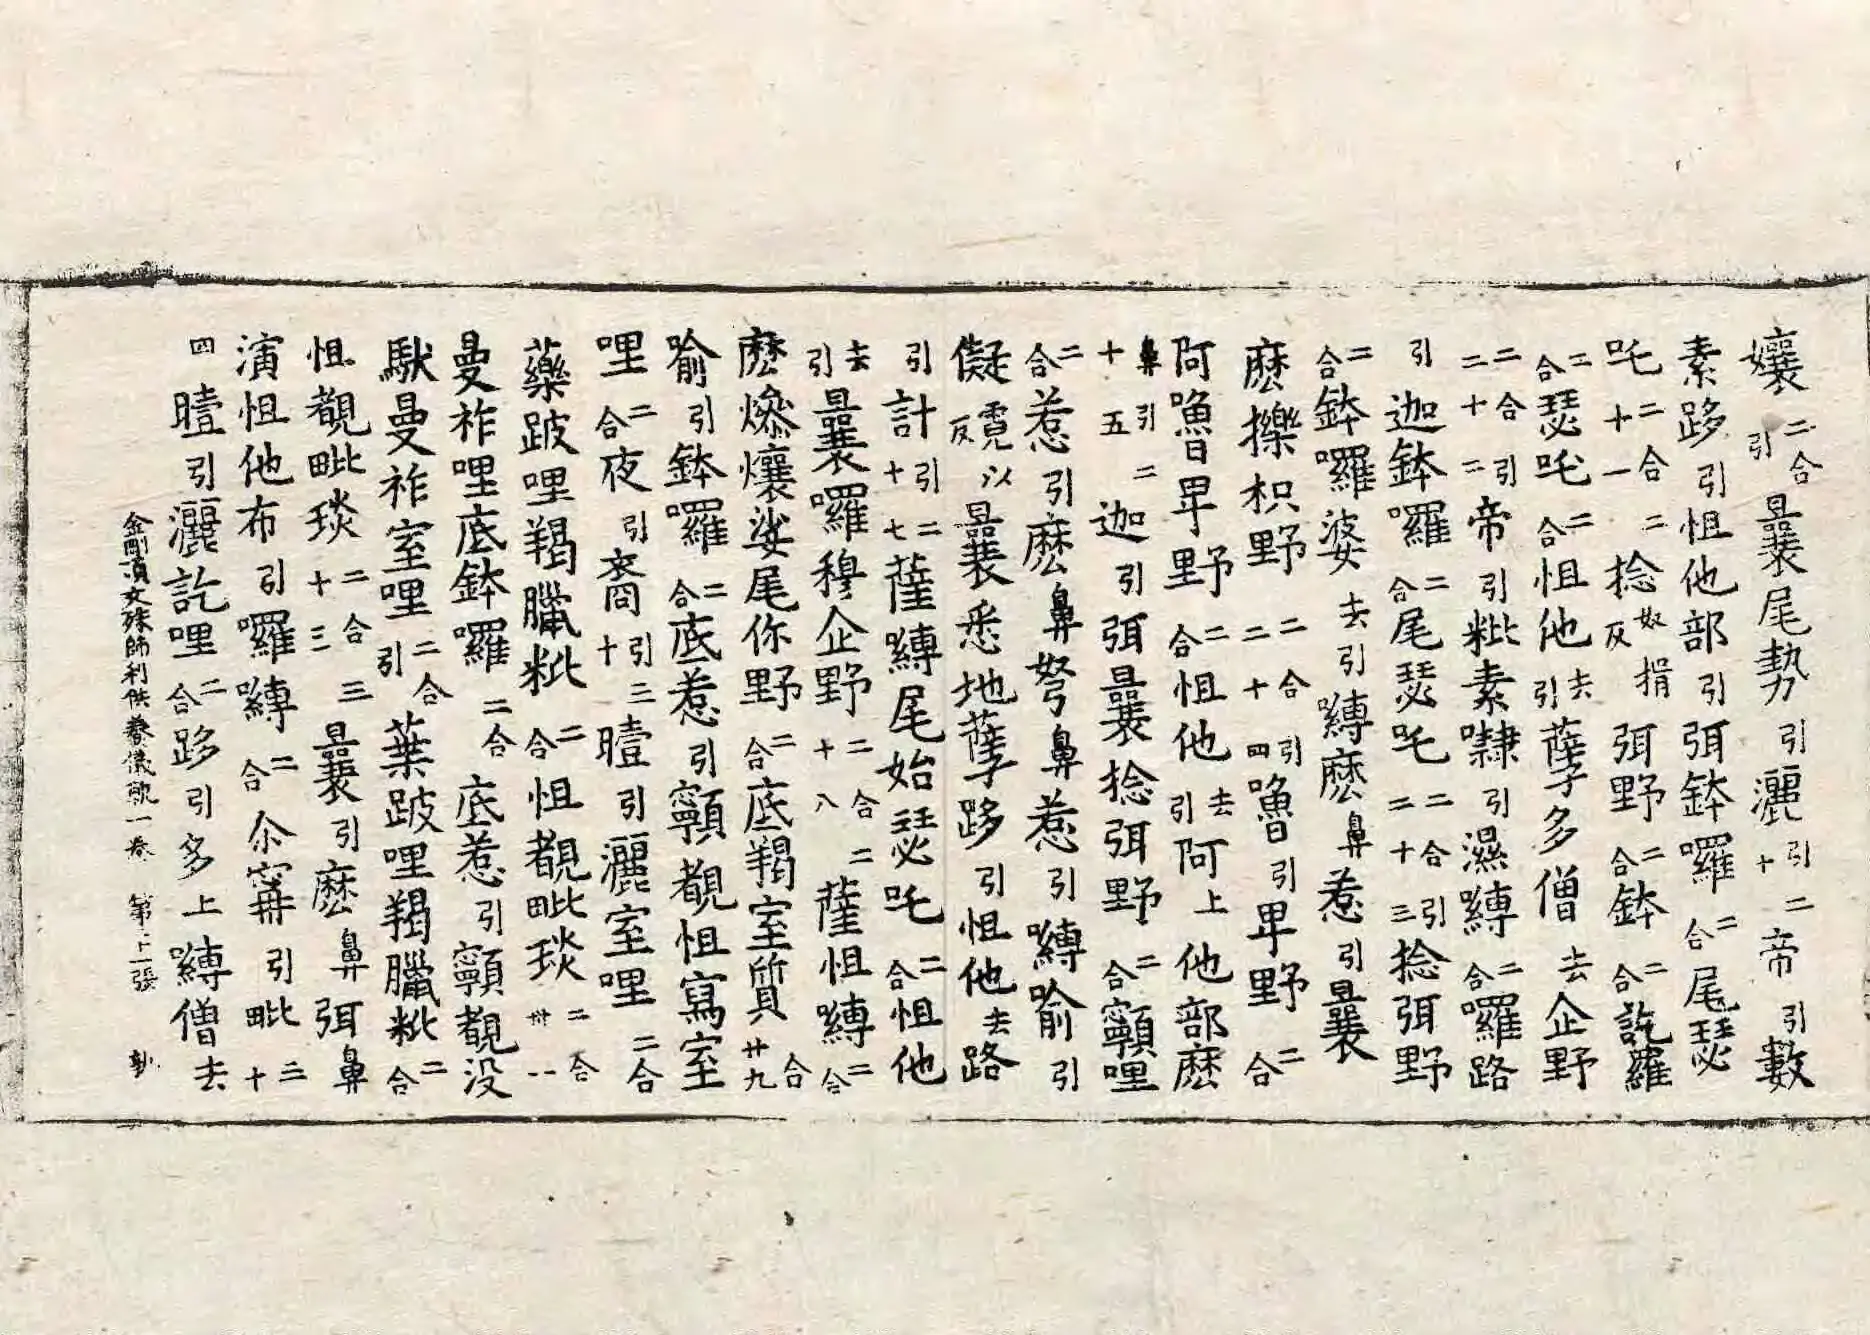 孃二合引曩尾勢引灑引二十帝引數
素跢引怛他部引弭鉢囉二合尾瑟
吒二合二十一捻奴揖反弭野二合鉢二合訖羅
二合瑟吒二合怛他去引孽多僧去企野
二合引二十二帝引粃素㘑引濕嚩二合囉路
引迦鉢囉二合尾瑟吒二合引二十三捻弭野
二合鉢囉婆去引嚩麽鼻惹引曩
麽擽枳野二合引二十四嚕引畢野二合
阿嚕畢野二合怛他去引阿上他部麽
鼻引二十五迦引弭曩捻弭野二合顊哩
二合惹引麽鼻弩鼻惹引嚩喻引
儗霓以反曩悉地孽跢引怛他去路
引計引二十七薩嚩尾始瑟吒二合怛他
去引曩囉穆企野二合二十八薩怛嚩二合
麽㷮孃娑尾你野二合底羯室質合廿九
喻引鉢囉二合底惹引顊覩怛寫室
哩二合夜引裔引三十曀引灑室哩二合
藥跛哩羯臘粃二合怛覩毗琰二合卅一
曼祚哩底鉢囉二合底惹引顊覩没
馱曼祚室哩二合引葉跛哩羯臘粃二合
怛覩毗琰二合三十二曩引麽鼻弭鼻
演怛他布引囉嚩二合尒寗引毗三十
四曀引灑訖哩二合跢引多上嚩僧去
金剛頂文殊師利供養儀軌一卷 第十二張